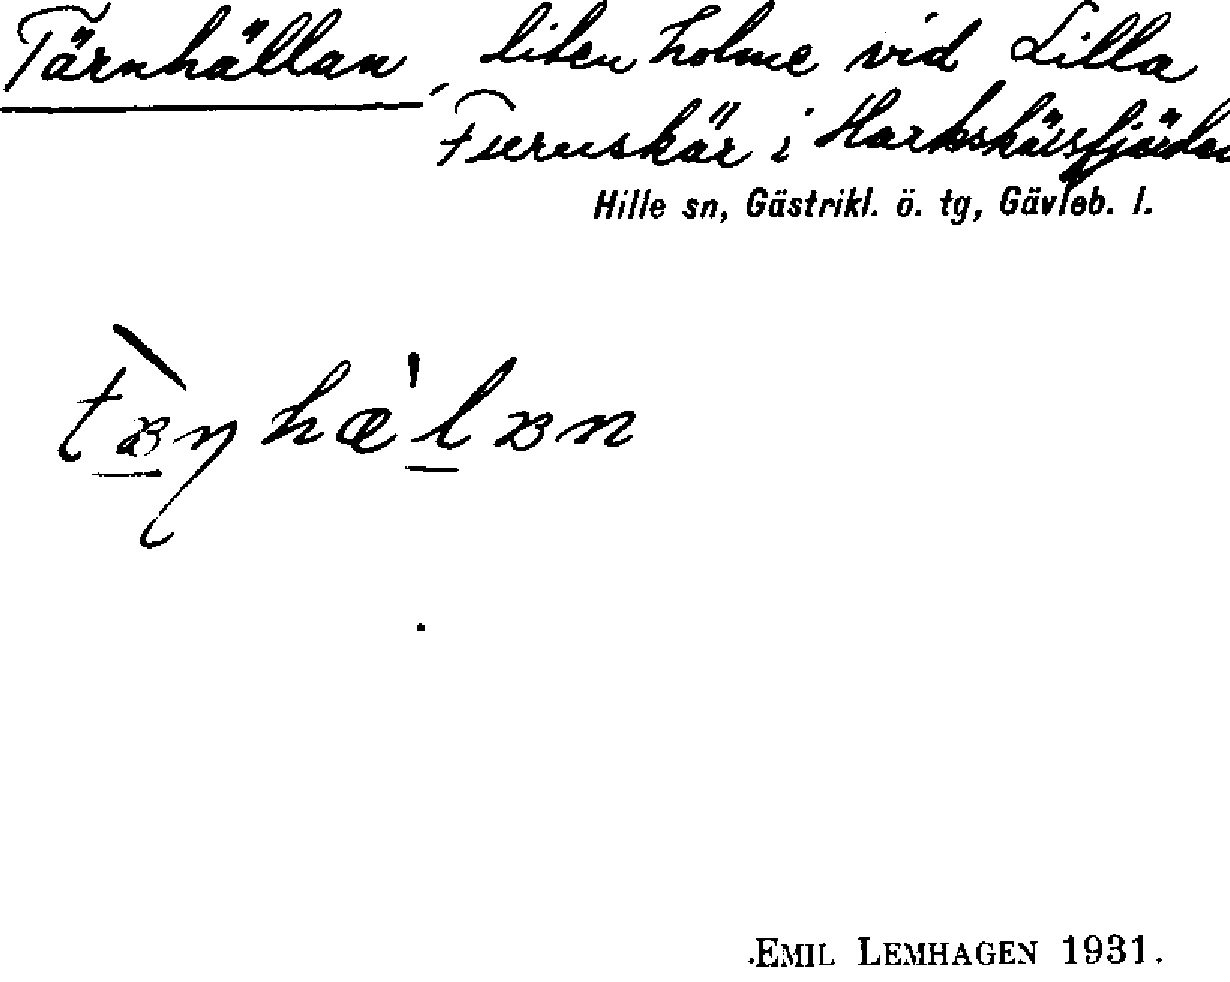 Tärnhällan, liten holme vid Lilla
Furuskär i Harkskärsfjärden
Hille sn, Gästrikl. ö. tg, Gävleb. l.
EMIL LEMHAGEN 1931.